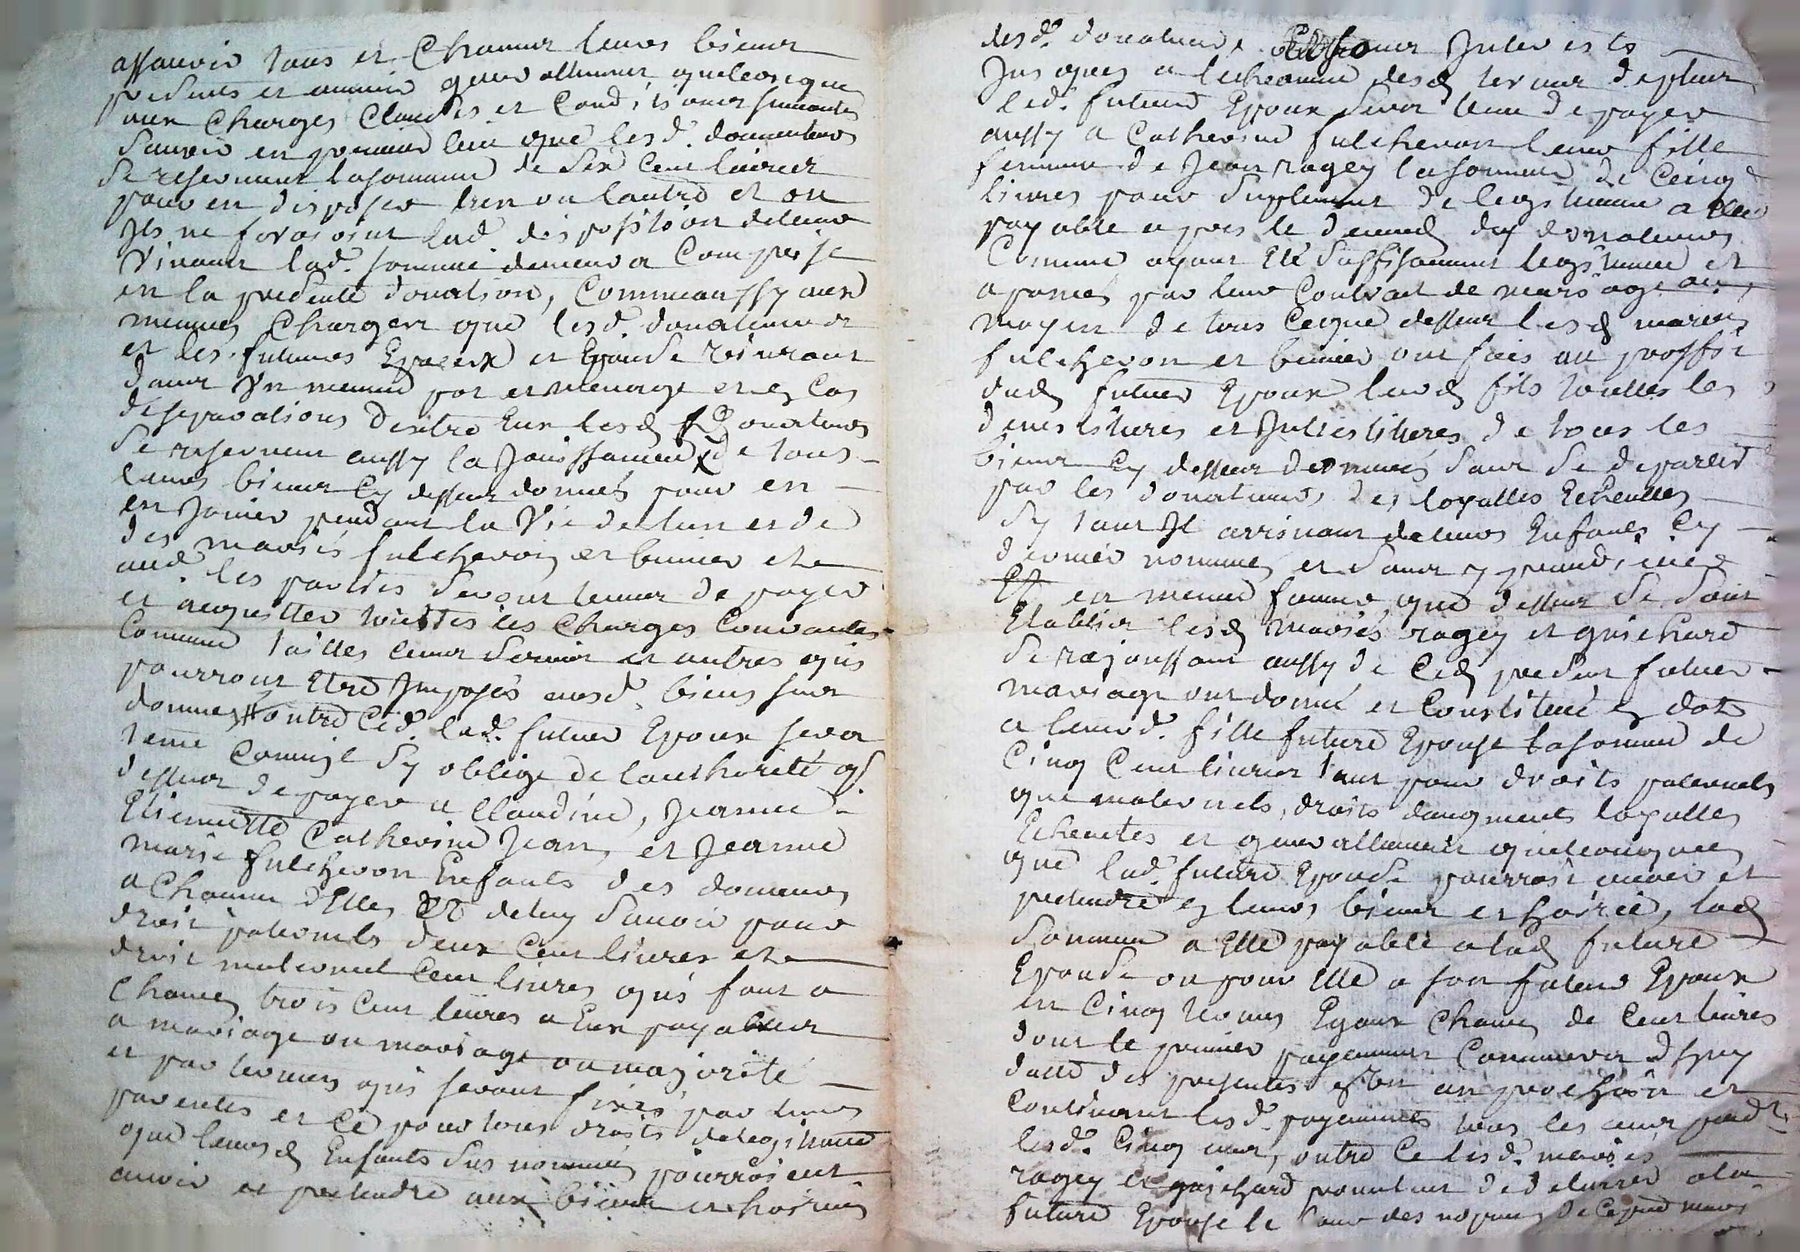 assavoir tous et Chacuns leurs bieens
presents et avenir generallement quelconque
aux Charges Clauses et Conditions suivantes
Sauvoir en premier lieu que lesd. donnateurs
Se reservent lasomme de Six Cent livres
pour en disposer lun ou lautre et ou
Ils ne feroiont lad. disposition deleur
Vivant lad. somme demeurera Comprise
en la presente donation, Comme aussy aux
mesmes Charges que lesd. donateurs
et les futures Epoux et Epouse vivront
dans un mesme pot et menage et en Cas
de separations Dentre Eux lesd donateurs
Se reservent aussy la Jouissance de tous
leurs bieens Cy dessus donnés pour en
en Jouir pendant la Vie de lun et de
des mariés fulcheron et bunier et a
aud. les parties Seront tenus de payer
et acquitter touttes les Charges Courantes
Comme tailles Cens Servis et autres qui
pourront Etre Imposés ausd. biens sus
donnes outre Ce. led. futur Epoux sera
tenu Comme il Sy oblige de lauthorité q
dessus de payer a Claudine, Jeanne
Etiennette Catherine Jean, et Jeanne
marie fulcheron Enfants des donneurs
a Chacun dElles Et deluy Sauvoir pour
droit paternels deux Cent livres et a
droit maternel Cent livres qui font a
Chacun trois Cent livres a Eux payables
a mariage ou mariage ou majorité
et par termes qui seront fixés par leurs
parentes et Ce pour tous droits de legitime
que leursd Enfants Sus nommés pourroient
avoir et pretendre aux bieens et hoiries
desd. donateurs Interests
Jusques a lecheance desd termes deplus
led. futur Epoux Sera tenu de payer
aussy a Catherine fulcheron leur fille
femme de Jean ragey lasomme de Cinq
livres pour Suplement de legitime a elle
payable apres le deced des donateurs
Comme ayant Eté Suffisamment legitimee et
aparnés par leur Contrat de mariage au
moyen de tous Ceque dessus lesd mariés
fulcheron et bunier ont fais au proffit
dud futur Epoux leurd fils touttes les
devestitures et Investitures de tous les
bieens Cy dessus donnés sans Se departir
par les donateurs des loyalles Echeutes
Sy tant Il arrivant deleurs Enfants Cy
dernier nommés et Sans y prejudicier
Et en mesme forme que dessus Se Sont
Etablis lesd mariés ragey et guichard
Se rejouissant aussy de Ced present futur
mariage ont donné et Constitué en dot
a leurd. fille future Epouse lasomme de
Cinq Cent livres tant pour droits paternels
que maternels, droits daugments loyalles
Echeutes et generallement quelconques
que lad. future Epouse pourroit avoir et
pretendre en leurs bieens et hoirie, lad
Somme a Elle payable alad future
Epouse ou pour Elle a son futur Epoux
en Cinq termes Egaux Chacun de Cent livres
dont le premier payement Commencera dhuy
datte des presentes en un an prochain et
Continuant lesd. payements tous les ans pendt
lesd. Cinq ans, outre Ce lesd. mariés
ragey et guichard promettent de delivrer ala
future Epouse le Jour des nopces de Ce pnt mariage